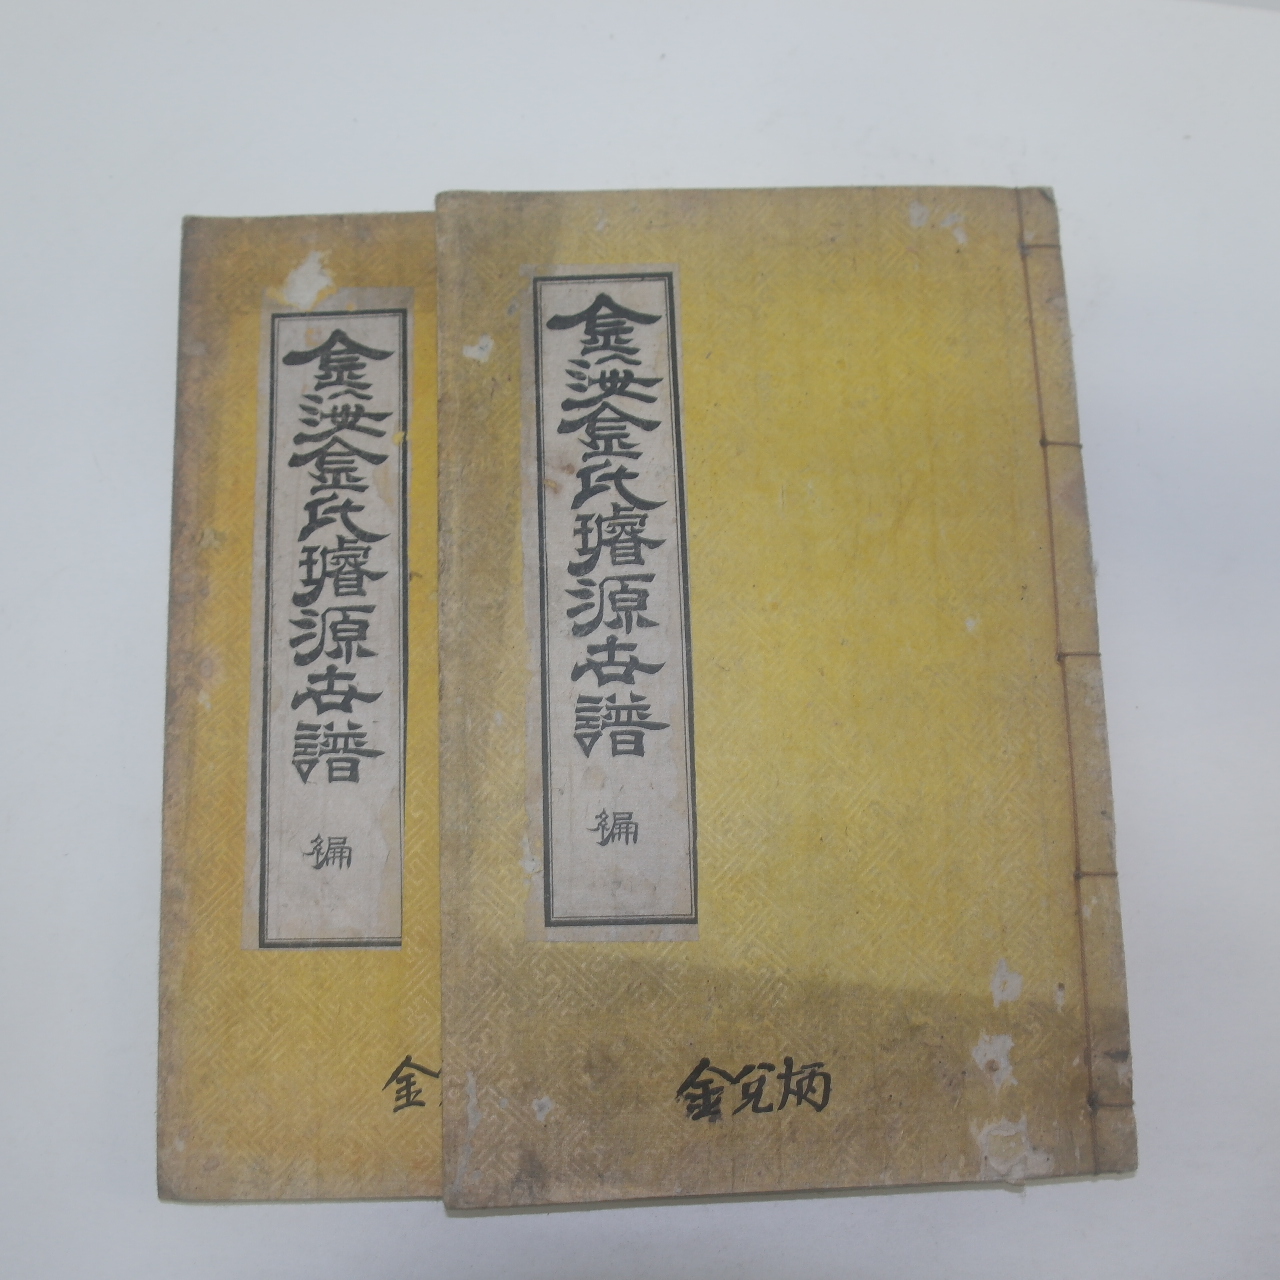 金海金氏璿源世譜 編
金兌炳
金海金氏璿源世譜 編
金